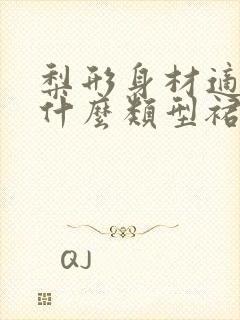 梨形身材適
什麼類型裙
QJ